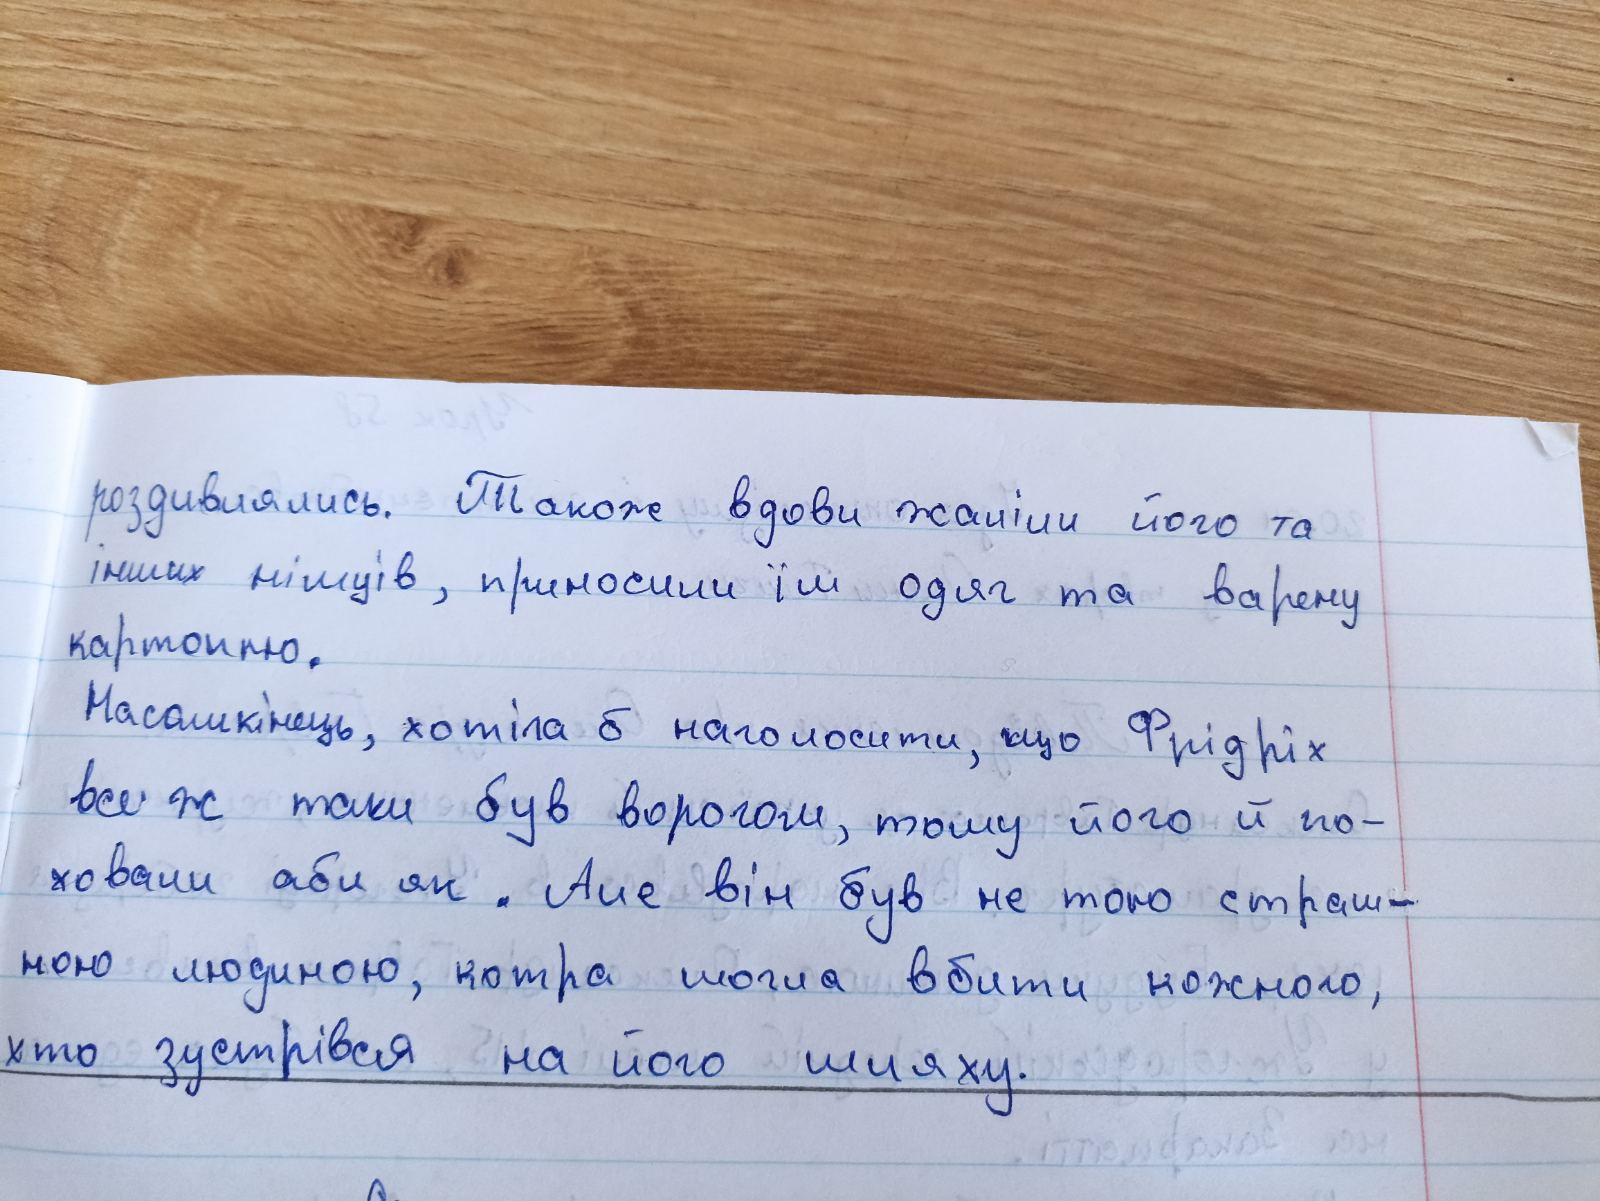 роздивлялись. Також вдови жаліли його та
інших німців, приносили їм одяг та варену
картоплю.
Насамкінець, хотіла б наголосити, що Фрідріх
все ж таки був ворогом, тому його й по-
ховали аби як. Але він був не тою страш-
ною людиною, котра могла вбити кожного,
хто зустрівся на його шляху.